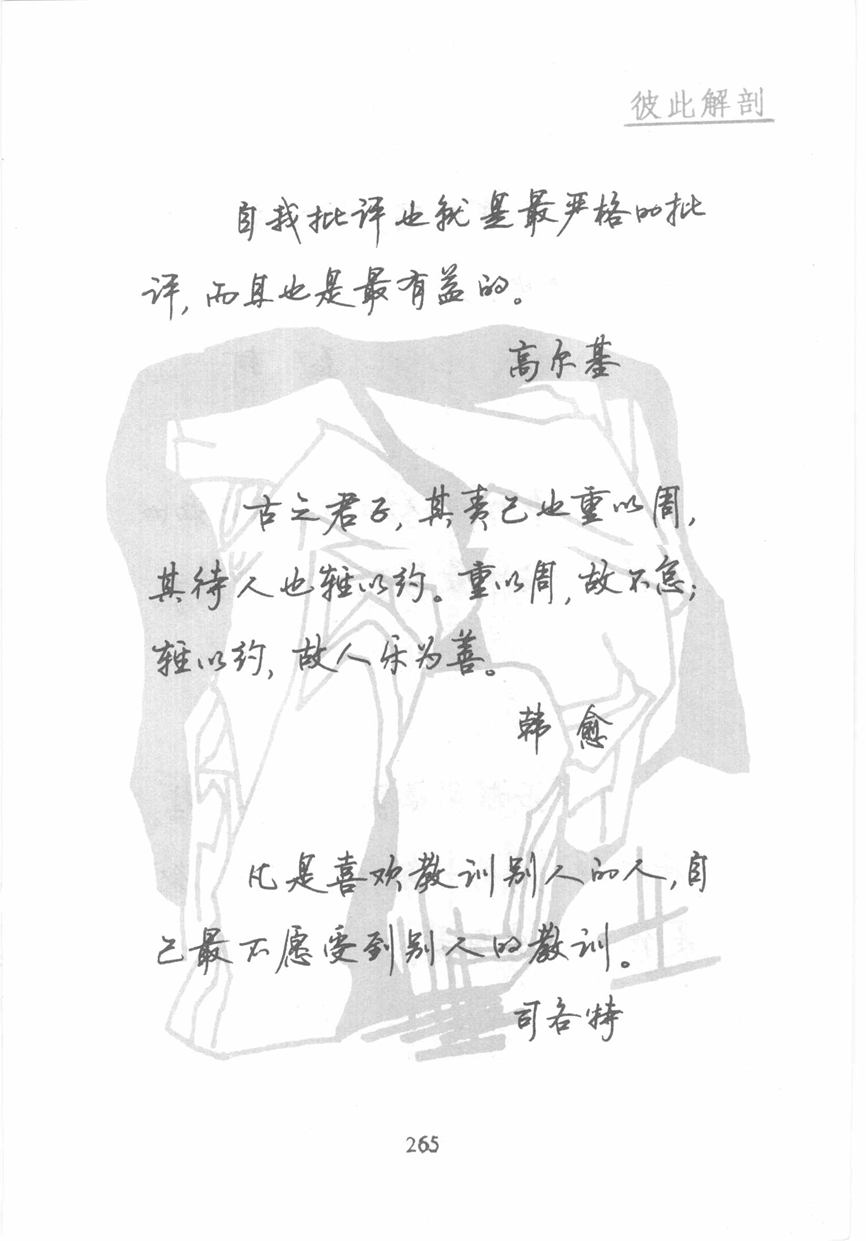 彼此解剖
自我批评也就是最严格的批
评,而且也是最有益的。
高尔基
古之君子,其责己也重以周,
其待人也轻以约。重以周,故不怠;
轻以约,故人乐为善。
韩愈
凡是喜欢教训别人的人,自
己最不愿受到别人的教训。
司各特
265